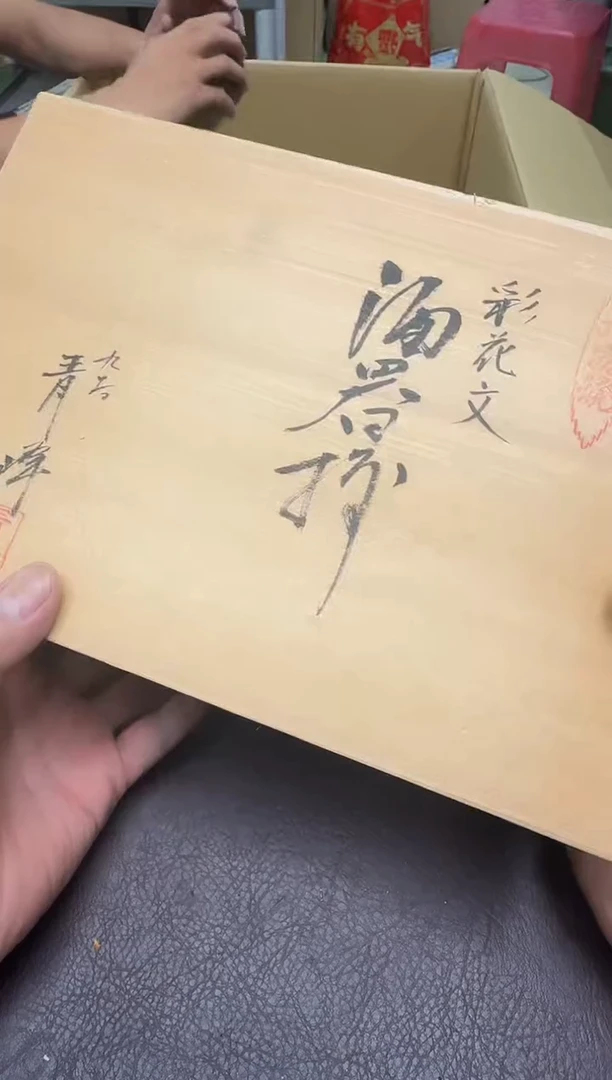 彩花文
酒器揃
九谷
青峰